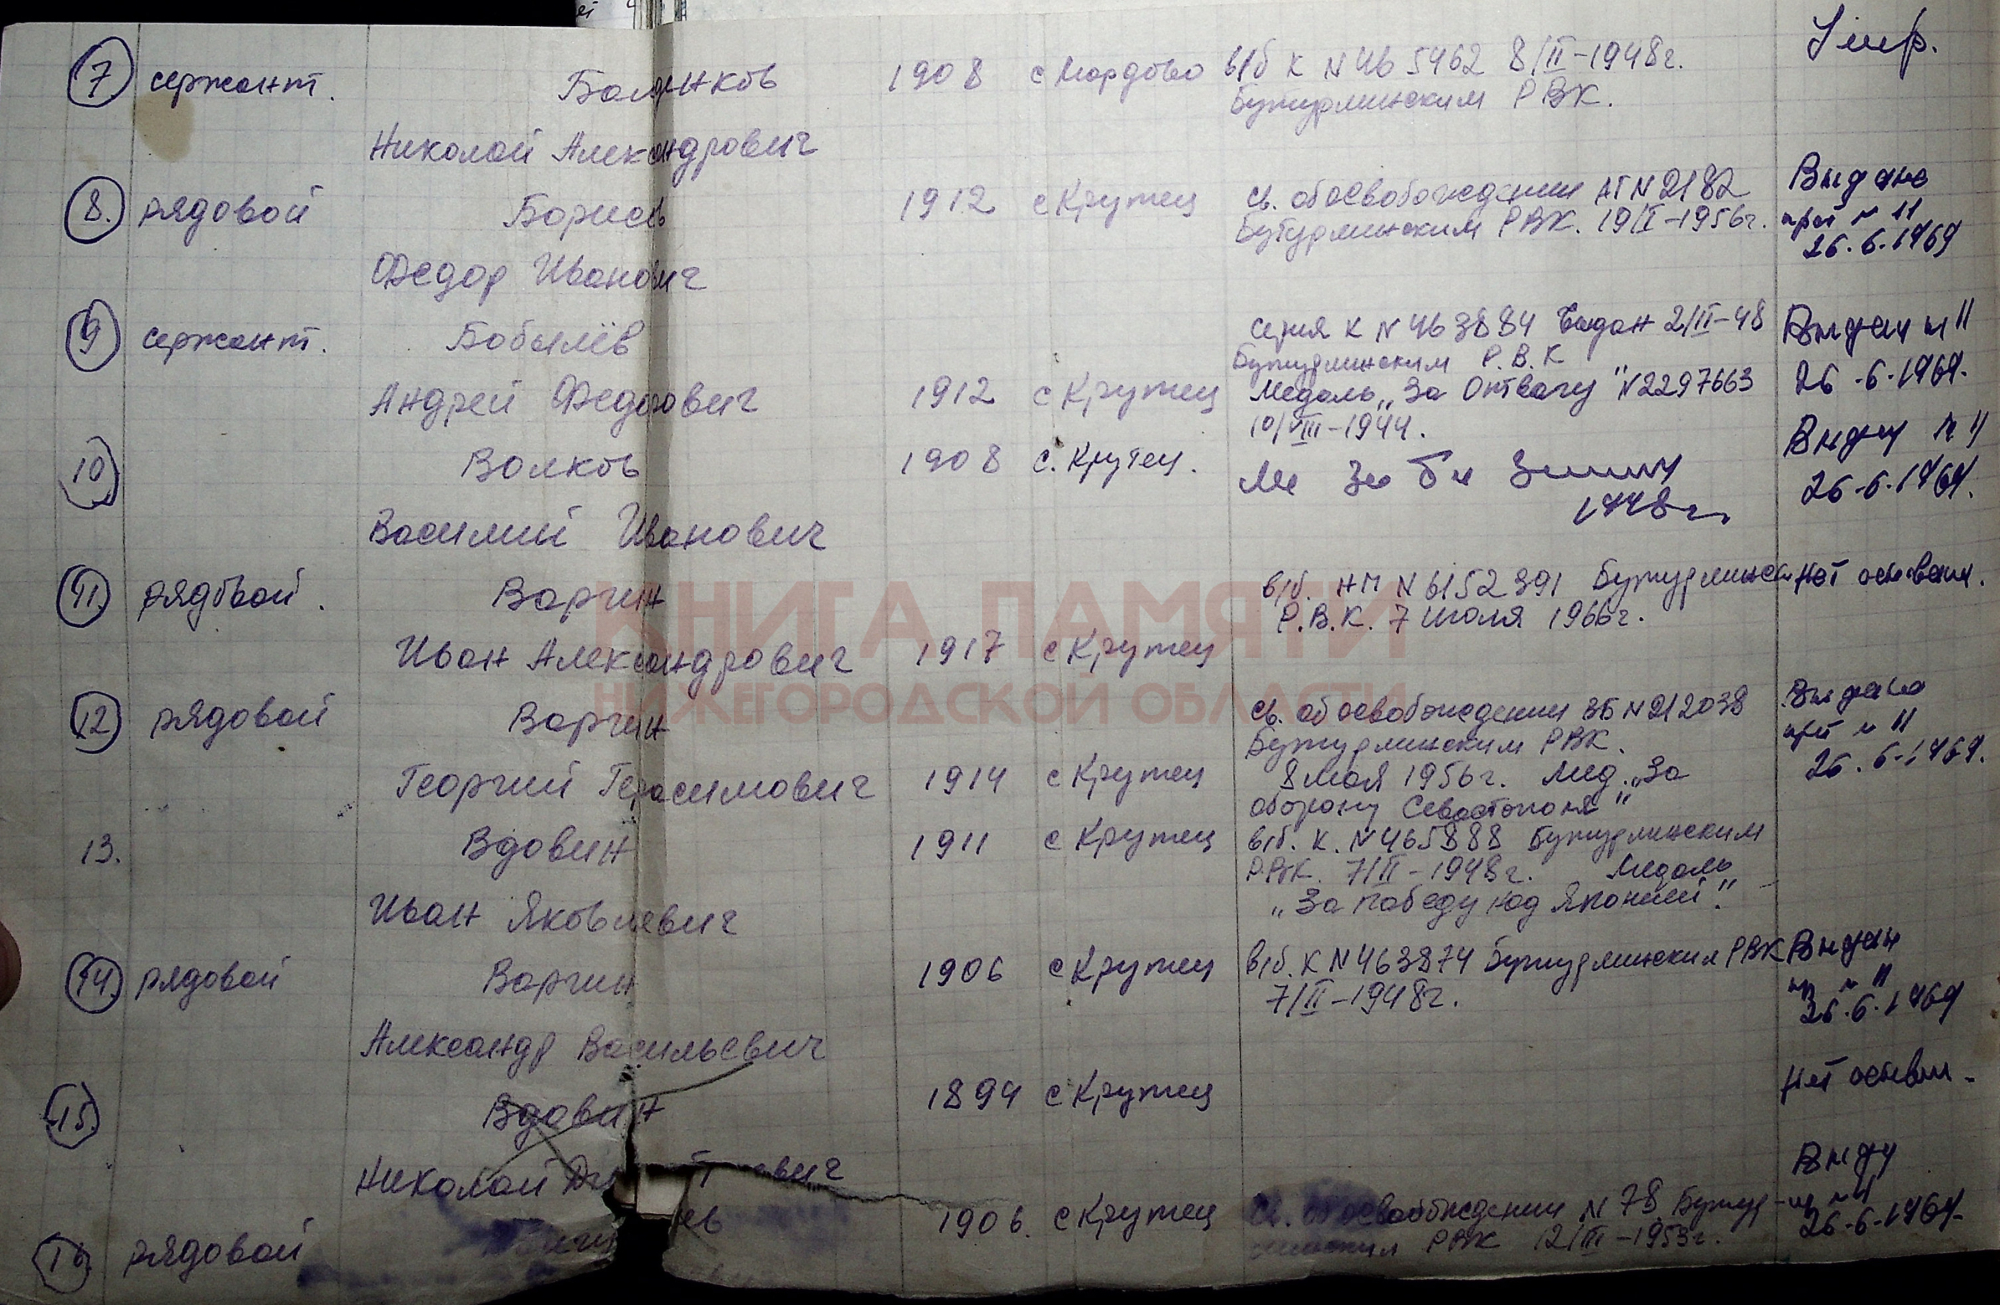 7 сержант. Баленков 1908 с Мордово в/б К N 465462 8/II-1948г. Умер.
Бутурлинским РВК.
Николай Александрович
8. рядовой Борисов 1912 с Крутец Св. об освобождении АГ N 2182 Выдано
Бутурлинским РВК. 19/I-1956г. N 11
Федор Иванович 26.6.1969
9 сержант. Бобылёв серия К N 463884 выдан 2/II-48 Выдан N 11
Бутурлинским Р.В.К
Андрей Федорович 1912 с Крутец Медаль „За Отвагу" N 2297663 26-6-1969.
10/VIII-1944.
10 Волков 1908 с. Крутец. 1948г N 11
26-6-1969.
Василий Иванович
11. рядовой. Варгин в/б. НМ N 6152391 Нет основан.
Р.В.К. 7 июля 1966г.
Иван Александрович 1917 с Крутец
12 рядовой Варгин Св. об освобождении ЗБ N 212038 Выдано
Бутурлинским РВК. N 11
Георгий Герасимович 1914 с Крутец 8 мая 1956г. Мед. „За 26.6-1969.
оборону Севастополя"
13. Вдовин 1911 с Крутец в/б. К. N 465888 Бутурлинским
РВК. 7/II-1948г. Медаль
„За победу над Японией".
Иван Яковлевич
14. рядовой Варгин 1906 с Крутец в/б. К N 463874 Бутурлинским РВК Выдан
7/II-1948г. N 11
26.6.1969
Александр Васильевич
15. Вдовин 1894 с Крутец Нет основан.
Николай
16. рядовой 1906. с Крутец Св. об освобождении N 78 Бутур-
РВК 12/III-1953г. 26-6-1969.
КНИГА ПАМЯТИ
НИЖЕГОРОДСКОЙ ОБЛАСТИ